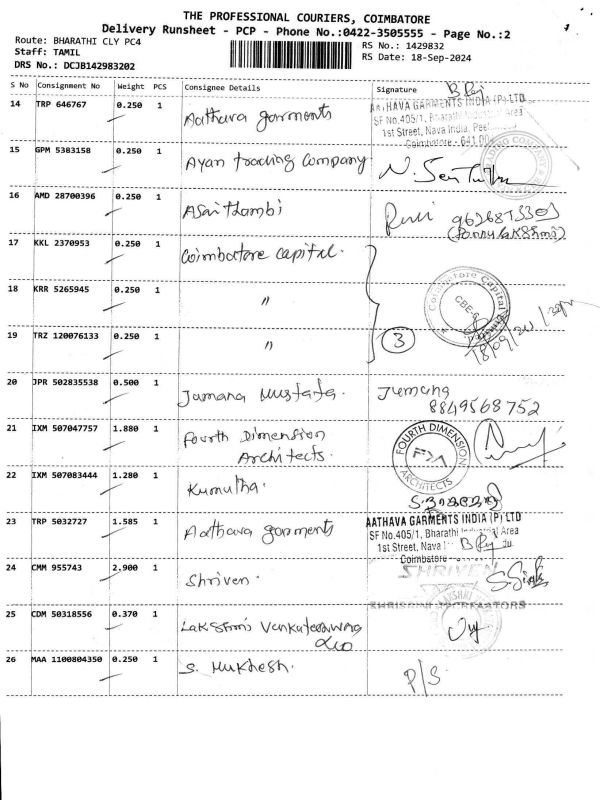 THE PROFESSIONAL COURIERS, COIMBATORE
Delivery Runsheet - PCP - Phone No.:0422-3505555 - Page No.:2
Route: BHARATHI CLY PC4
Staff: TAMIL
DRS No.: DCJB142983202
RS No.: 1429832
RS Date: 18-Sep-2024
S No Consignment No Weight PCS Consignee Details Signature
14 TRP 646767 0.250 1 Aathava garments
AATHAVA GARMENTS INDIA (P) LTD
SF No.405/1, Bharathi Industrial Area
1st Street, Nava India,
Coimbatore - 641
15 GPM 5383158 0.250 1 Ayan trading Company
16 AMD 28700396 0.250 1 Asaithambi
17 KKL 2370953 0.250 1 Coimbatore capital.
18 KRR 5265945 0.250 1 "
Coimbatore Capital
CBE-6
18/09/24
19 TRZ 120076133 0.250 1 " 3
20 JPR 502835538 0.500 1 Jamana Mustafa. Jumana
8849568752
21 IXM 507047757 1.880 1 Fourth Dimension
Architects.
FOURTH DIMENSION
FDA
ARCHITECTS
22 IXM 507083444 1.280 1 Kumutha.
23 TRP 5032727 1.585 1 Aathava garments
AATHAVA GARMENTS INDIA (P) LTD
SF No.405/1, Bharathi Industrial Area
1st Street, Nava
Coimbatore
24 CMM 955743 2.900 1 Shriven.
SHRIVEN
25 CDM 50318556 0.370 1 Lakshmi
26 MAA 1100804350 0.250 1 S. Mukhesh. P/S